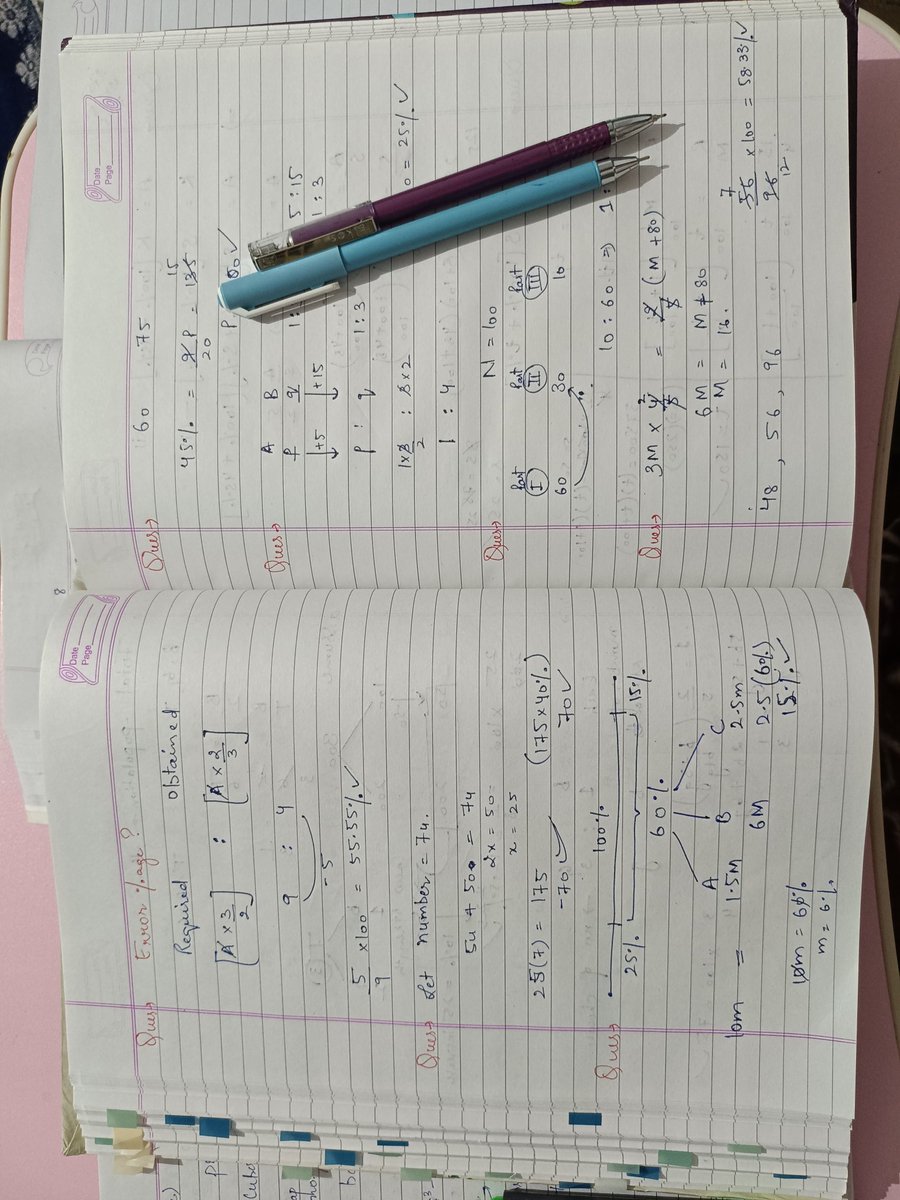 Date
Page
Ques→ Error %age?
Required obtained
[A × 3/2] : [A × 2/3]
9 : 4
-5
5/9 × 100 = 55.55% ✓
Ques→ Let number = 7x.
5x + 50 = 7x
2x = 50
x = 25
25(7) = 175 (175 × 40%)
-70 ✓ 70 ✓
Ques→ 100%
25% 15%
60%
A B C
10m = 1.5M 6M 2.5m
2.5(6%)
15% ✓
10m = 60%
m = 6%
Date
Page
Ques→ 60 75
45% = 9/20 P = 135 15
P
00 ✓
Ques→ A B
p q 1: 5:15
↓+5 ↓+15 1:3
p : q 1:3
1×3/2 : 3×2
1 : 4 0 = 25% ✓
Ques→ N = 100
Part I Part II Part III
60 30 10
10
10 : 60 ⇒ 1:
Ques→ 3M × 4/5 = (M + 80)
6M = M + 80
M = 16.
48, 56, 96
56/96 × 100 = 58.33% ✓
7
12